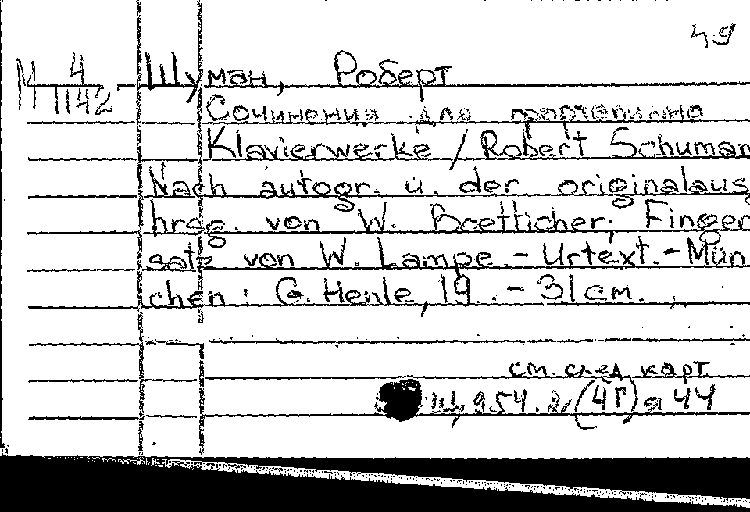 49
М 4 Шуман, Роберт
1142 Сочинения для фортепиано
Klavierwerke / Robert Schuman
Nach autogr. u. der originalaus
hrsg. von W. Boetticher; Finger
satz von W. Lampe. - Urtext. - Mün
chen : G. Henle, 19 . - 31 cm.
см. след. карт
Щ 954.2 (4Г) я 44